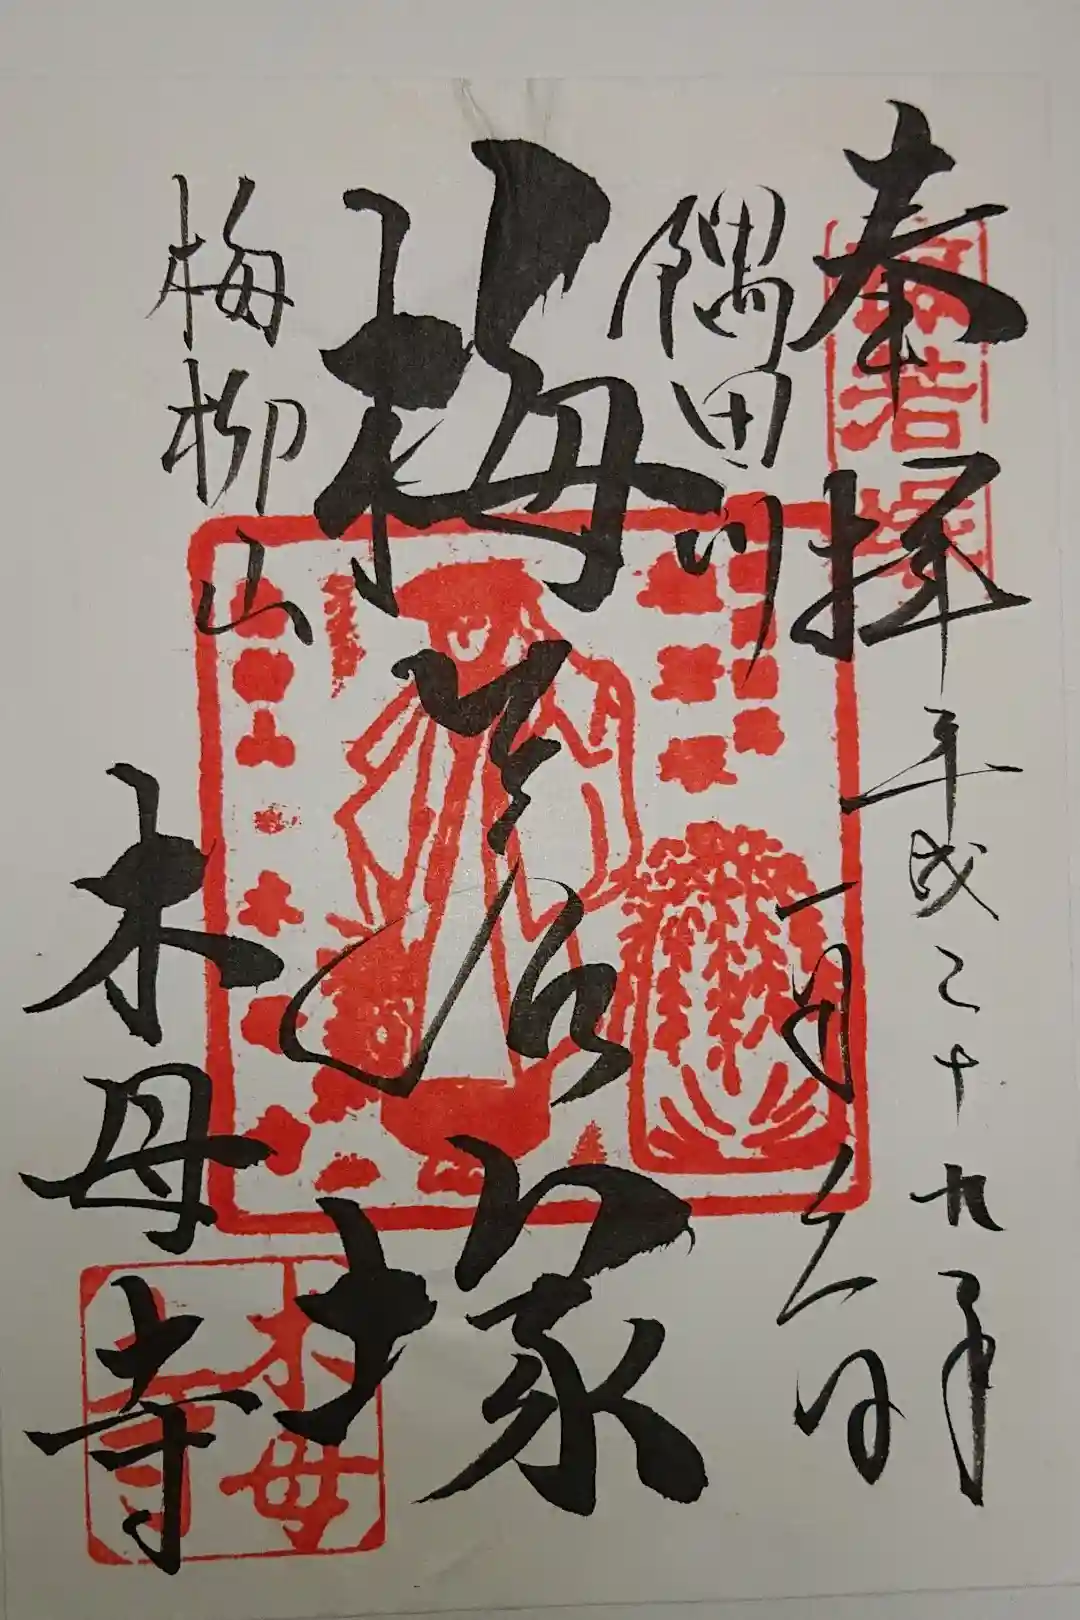 奉拝
平成二十九年
一月 日
隅田川
梅若塚
梅柳山
木母寺
梅若塚
木母寺